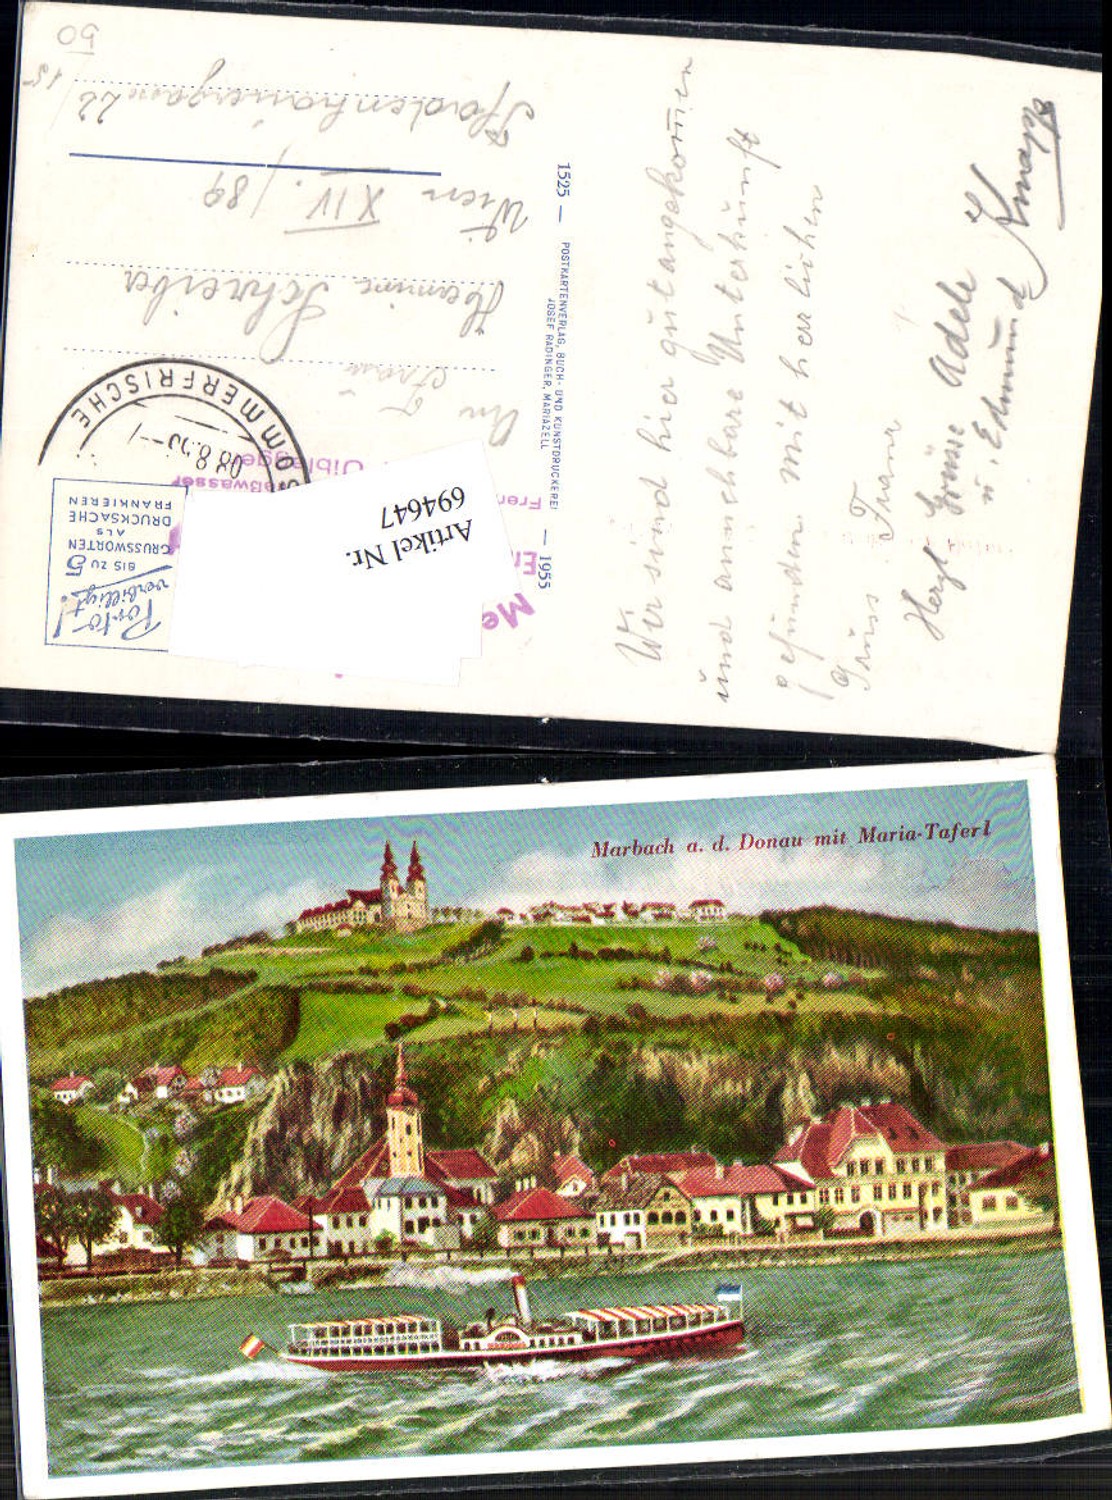 Wir sind hier gut angekommen
und annehmbare Unterkunft
gefunden mit herrlichen
Gruss Franz
Herzl Grüsse Adele
u. Edmund Knapp
1525 — POSTKARTENVERLAG, BUCH- UND KUNSTDRUCKEREI — 1955
JOSEF RADINGER, MARIAZELL
An
Frau
Hermine Schreiber
Wien XIV. /89
22
15
50
SOMMERFRISCHE
Porto-
verbilligt!
BIS ZU 5
GRUSSWORTEN
ALS
DRUCKSACHE
FRANKIEREN
Artikel Nr.
694647
Marbach a. d. Donau mit Maria-Taferl